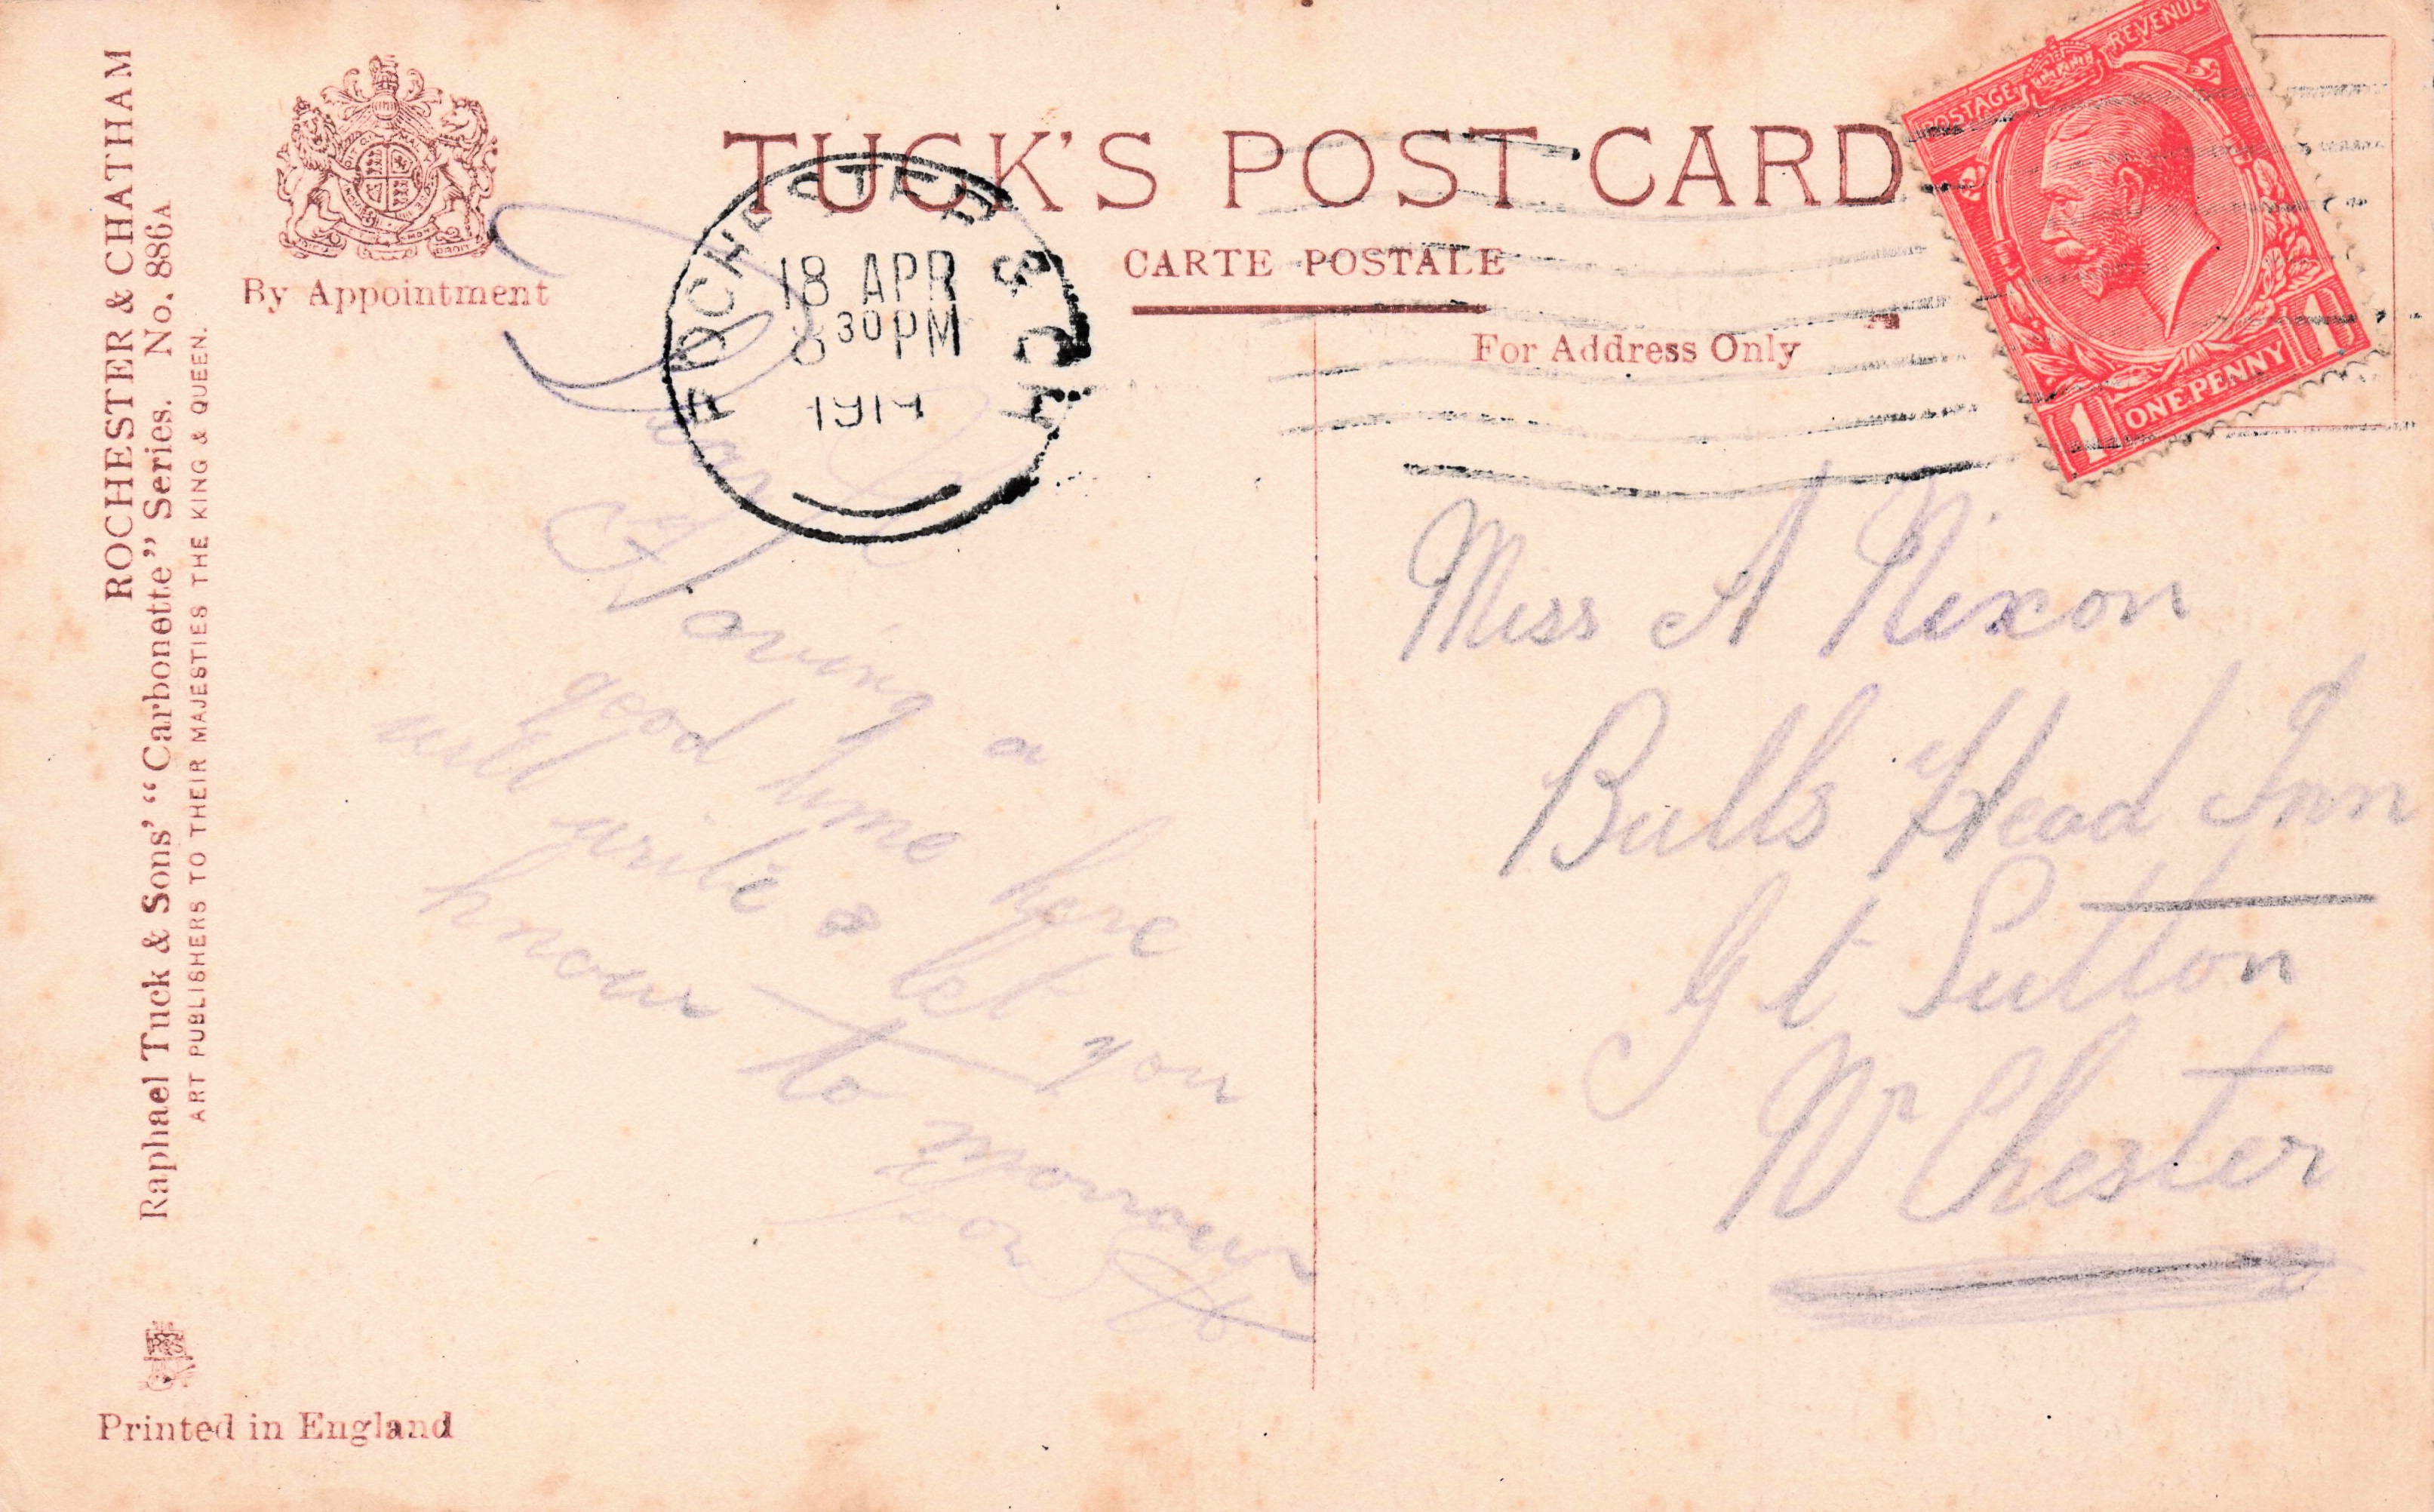 ROCHESTER & CHATHAM
Raphael Tuck & Sons' "Carbonette" Series. No. 886A
ART PUBLISHERS TO THEIR MAJESTIES THE KING & QUEEN.
By Appointment
TUCK'S POST CARD
CARTE POSTALE
For Address Only
ROCHESTER
18 APR
8 30 PM
POSTAGE REVENUE
1 ONE PENNY 1
Dear
Having a
good time here
will write & let you
know to
morrow
Miss A Nixon
Bulls Head Inn
Gt Sutton
Nr Chester
Printed in England